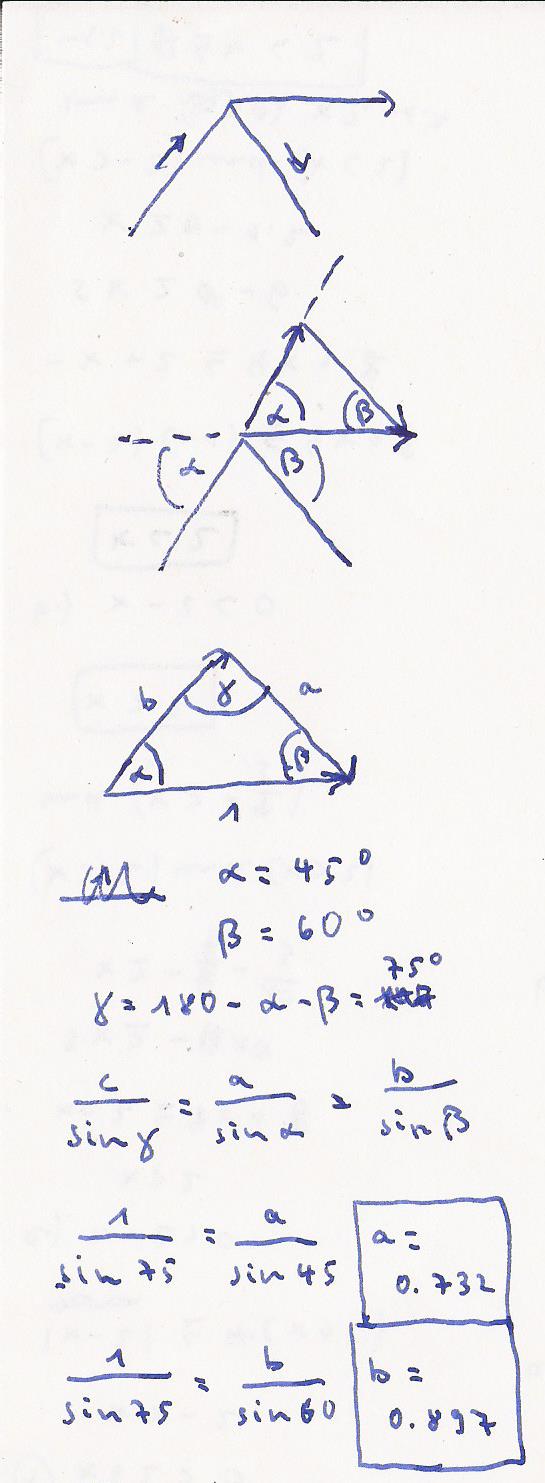 α β
α β
b γ a
α β
1
α = 45°
β = 60°
γ = 180 - α - β = 75°
c/sin γ = a/sin α = b/sin β
1/sin 75 = a/sin 45
a = 0.732
1/sin 75 = b/sin 60
b = 0.897